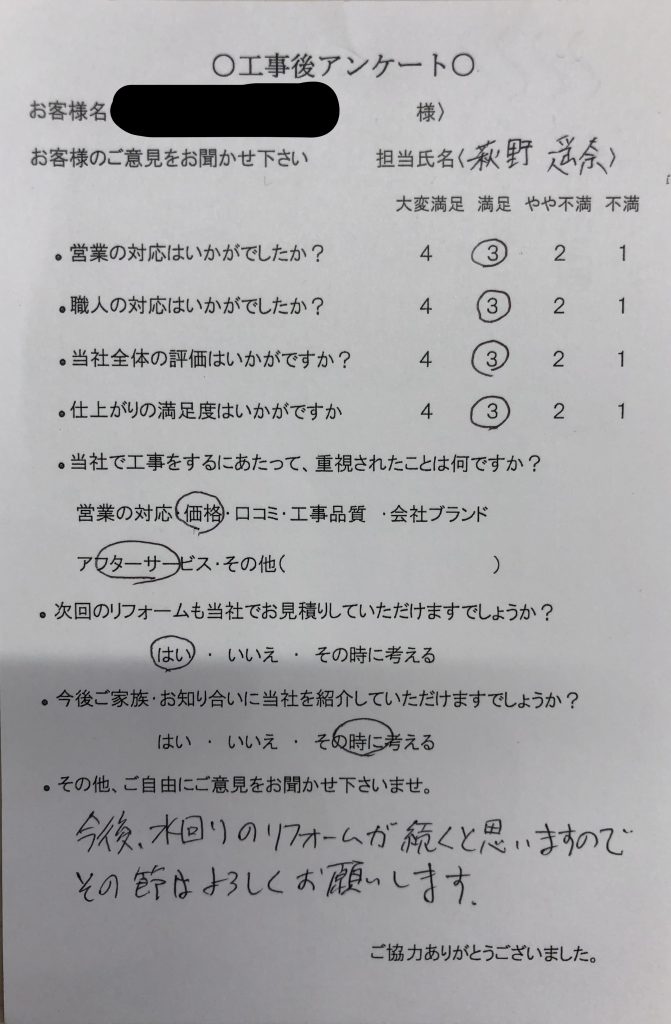 〇工事後アンケート〇
お客様名 様〉
お客様のご意見をお聞かせ下さい 担当氏名〈萩野 遥奈〉
大変満足 満足 やや不満 不満
・営業の対応はいかがでしたか? 4 3 2 1
・職人の対応はいかがでしたか? 4 3 2 1
・当社全体の評価はいかがですか? 4 3 2 1
・仕上がりの満足度はいかがですか 4 3 2 1
・当社で工事をするにあたって、重視されたことは何ですか?
営業の対応・価格・口コミ・工事品質 ・会社ブランド
アフターサービス・その他( )
・次回のリフォームも当社でお見積りしていただけますでしょうか?
はい ・ いいえ ・ その時に考える
・今後ご家族・お知り合いに当社を紹介していただけますでしょうか?
はい ・ いいえ ・ その時に考える
・その他、ご自由にご意見をお聞かせ下さいませ。
今後、水回りのリフォームが続くと思いますので
その節はよろしくお願いします.
ご協力ありがとうございました。